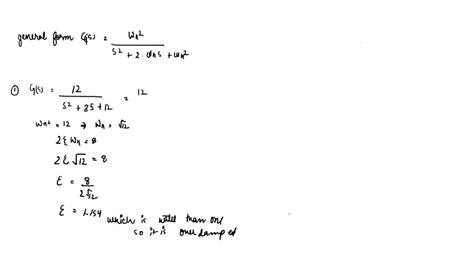 general form G(s) = ωn²
s² + 2·dns + ωn²
① G(s) = 12 = 12
s² + 8s + 12
ωn² = 12 → ωn = √12
2ξωn = 8
2ξ√12 = 8
ξ = 8
2√12
ξ = 1.154 which is than one
so it is overdamped